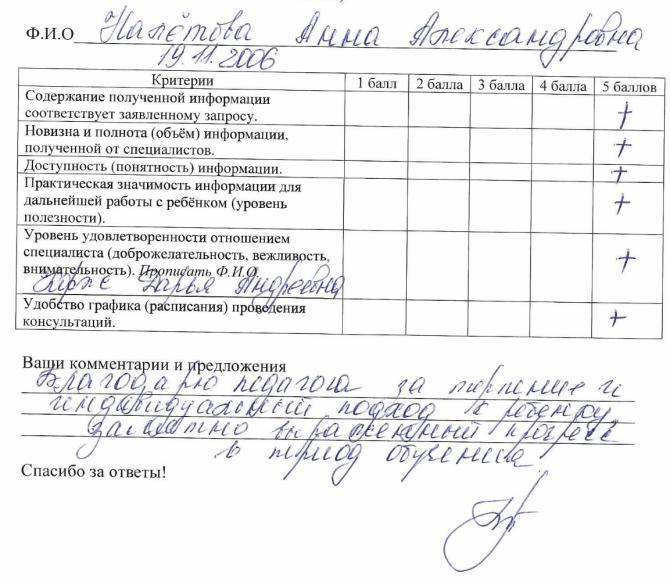 Ф.И.О Налётова Анна Александровна
19.11.2006
Критерии 1 балл 2 балла 3 балла 4 балла 5 баллов
Содержание полученной информации
соответствует заявленному запросу. +
Новизна и полнота (объём) информации,
полученной от специалистов. +
Доступность (понятность) информации. +
Практическая значимость информации для
дальнейшей работы с ребёнком (уровень
полезности). +
Уровень удовлетворенности отношением
специалиста (доброжелательность, вежливость,
внимательность). Прописать Ф.И.О. +
Корж Дарья Андреевна
Удобство графика (расписания) проведения
консультаций. +
Ваши комментарии и предложения
Благодарю педагога за терпение и
индивидуальный подход к ребенку,
заметно выраженный прогресс
в период обучения.
Спасибо за ответы!